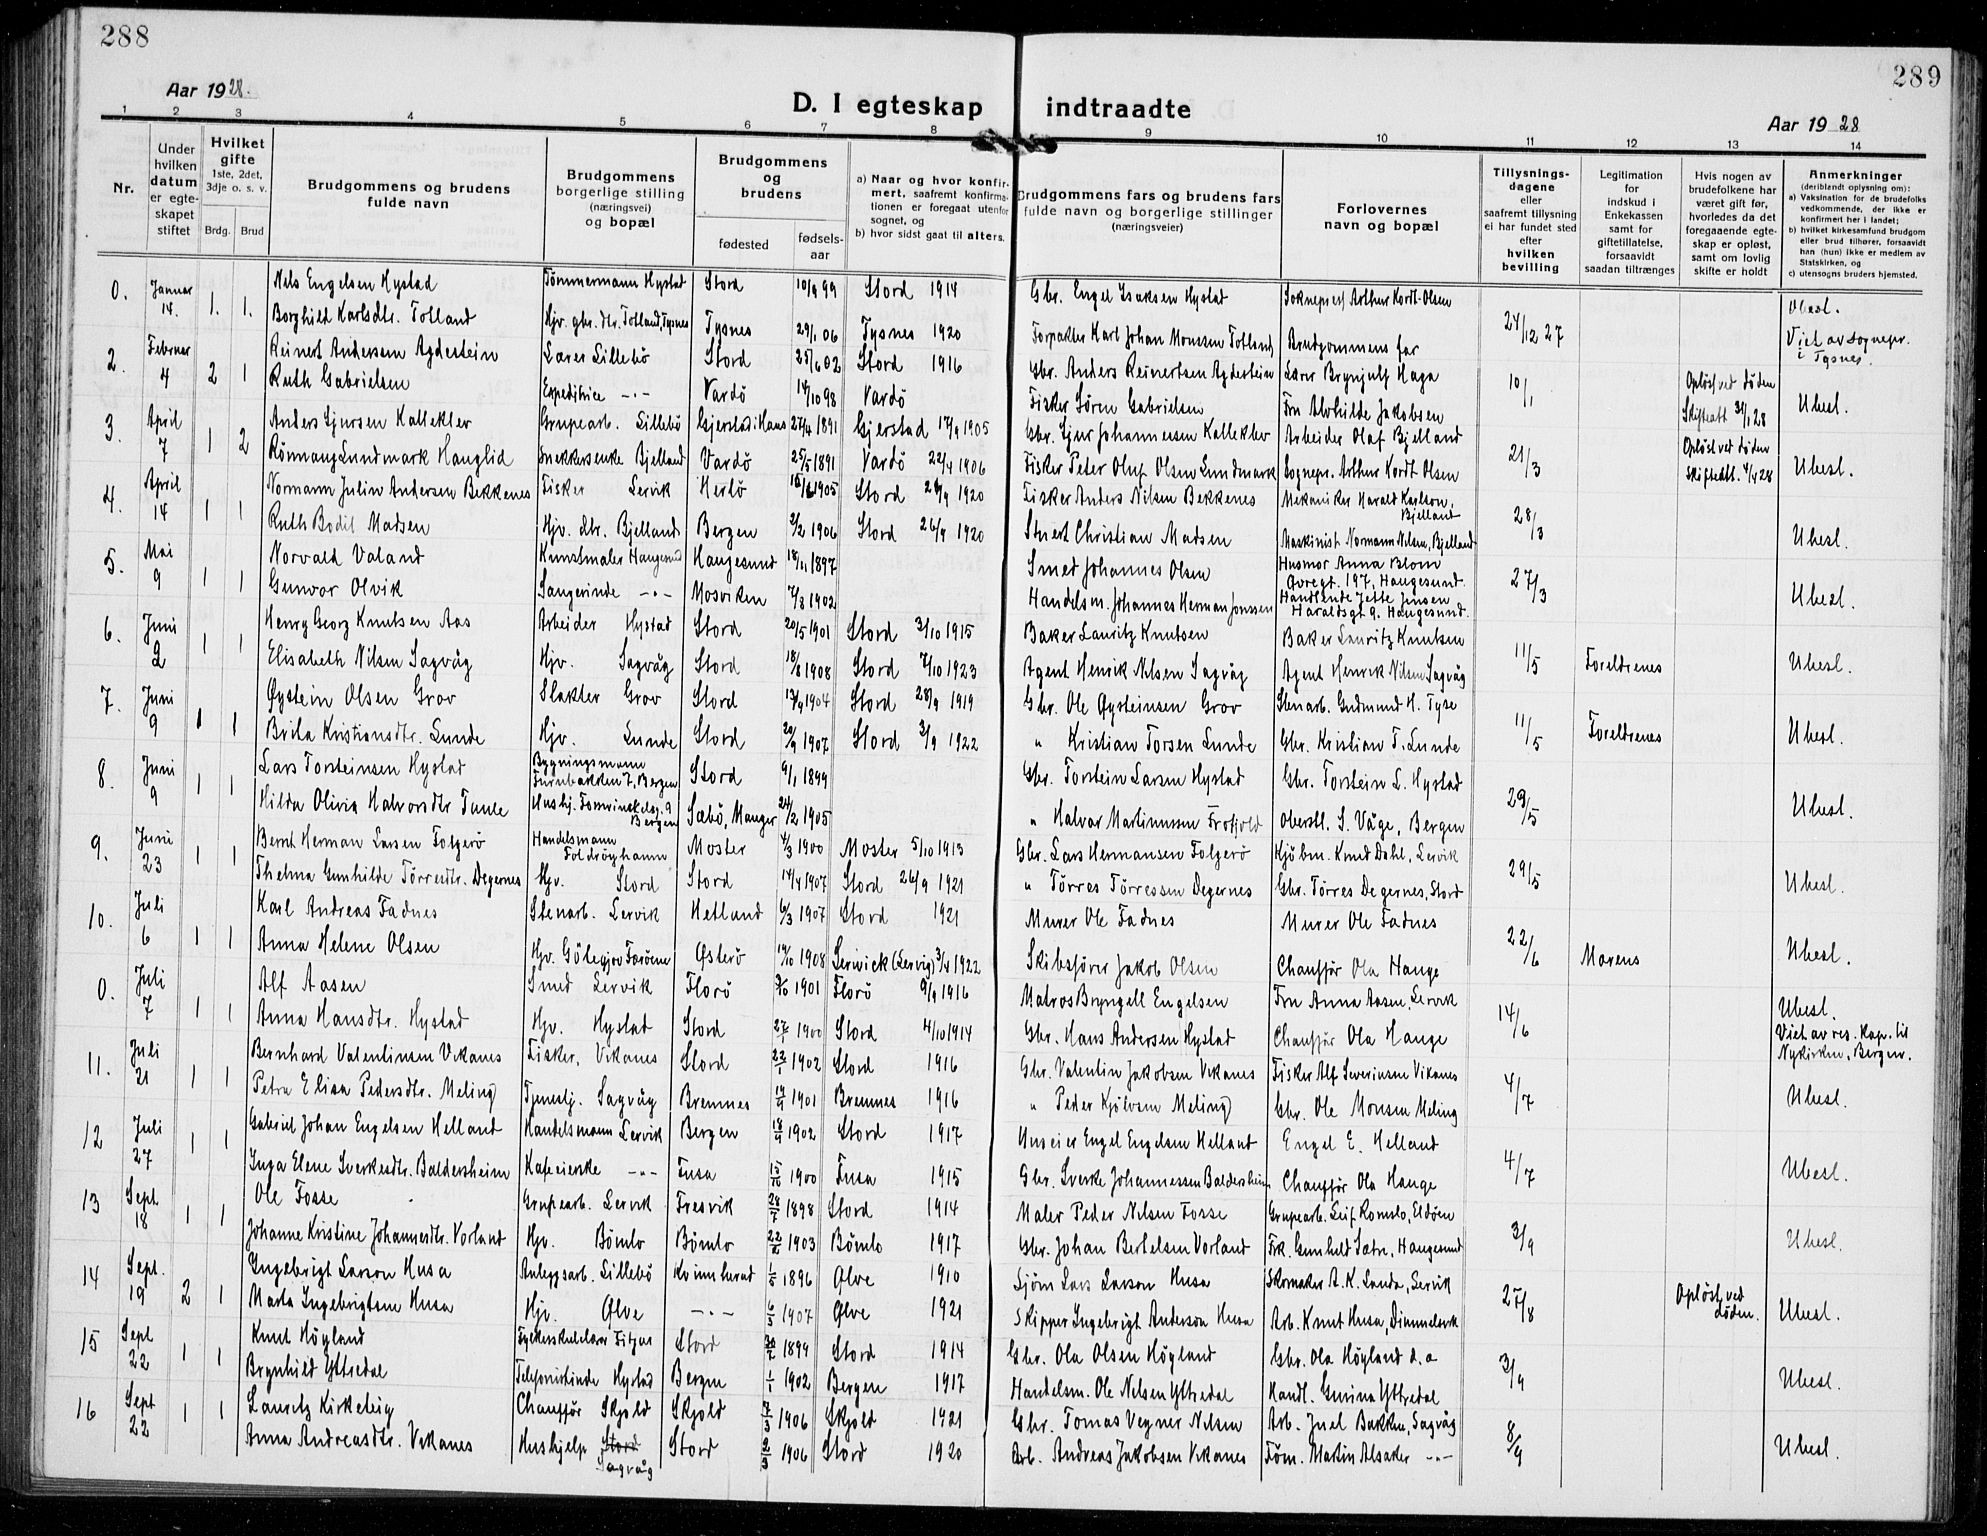 288
289
Aar 1928.
D. I egteskap indtraadte
Aar 1928
1 2 3 4 5 6 7 8 9 10 11 12 13 14
Nr.
Under hvilken datum er egteskapet stiftet
Hvilket gifte
1ste, 2det, 3dje o. s. v.
Brdg. Brud
Brudgommens og brudens fulde navn
Brudgommens borgerlige stilling (næringsvei) og bopæl
Brudgommens og brudens
fødested
fødselsaar
a) Naar og hvor konfirmert, saafremt konfirmationen er foregaat utenfor sognet, og
b) hvor sidst gaat til alters.
Brudgommens fars og brudens fars fulde navn og borgerlige stillinger (næringsveier)
Forlovernes navn og bopæl
Tillysningsdagene eller saafremt tillysning ei har fundet sted efter hvilken bevilling
Legitimation for indskud i Enkekassen samt for giftetillatelse, forsaavidt saadan tiltrænges
Hvis nogen av brudefolkene har været gift før, hvorledes da det foregaaende egteskap er opløst, samt om lovlig skifte er holdt
Anmerkninger
(deriblandt oplysning om):
a) Vaksination for de brudefolks vedkommende, der ikke er konfirmert her i landet;
b) hvilket kirkesamfund brudgom eller brud tilhører, forsaavidt han (hun) ikke er medlem av Statskirken, og
c) utensogns bruders hjemsted.
0. Januar 14. 1. 1. Nels Engelsen Hystad Tømmermann Hystad Stord 10/9 99 Stord 1914 Gbr. Engel Isaksen Hystad Sokneprest Arthur Kordt-Olsen 24/12 27 Ubesl.
Borghild Karlsdtr. Tolland Hjv. gbr. dtr. Tolland, Tysnes Tysnes 29/1 06 Tysnes 1920 Forpakter Karl Johan Monssen Tolland Brudgommens far Viet av sognepr. i Tysnes.
2. Februar 4 2 1 Reinert Andersen Agdestein Lærer Lillebö Stord 25/6 02 Stord 1916 Gbr. Anders Reinertsen Agdestein Lærer Brynjulf Haga 10/1 Opløst ved døden Ubesl.
Ruth Gabrielsen Expeditrice -"- Vardö 14/10 98 Vardö Fisker Sören Gabrielsen Fru Alvhilde Jakobsen Skifteatt 31/1 28
3. April 7 1 2 Anders Gjursen Kallekler Grupearb. Lillebö Gjerstad i Haus 27/4 1891 Gjerstad 17/9 1905 Gbr. Gjur Johannessen Kallekler Arbeider Olaf Bjelland 21/3 Opløst ved døden Ubesl.
Rönnaug Lundmark Hauglid Snekkerenke Bjelland Vardö 25/5 1891 Vardö 22/4 1906 Fisker Peter Oluf Olsen Lundmark Sognepr. Arthur Kordt Olsen Skifteatt. 4/4 28
4. April 14 1 1 Normann Julin Andersen Bekkenes Fisker Lervik Herlö 16/6 1905 Stord 26/9 1920 Fisker Anders Nilsen Bekkenes Mekaniker Harald Karlson, Bjelland 28/3 Ubesl.
Ruth Bodil Madsen Hjv. dtr. Bjelland Bergen 2/2 1906 Stord 26/9 1920 Christian Madsen Maskinist Normann Nilsen, Bjelland
5. Mai 9 1 1 Norvald Valand Kunstmaler Haugesund Haugesund 18/11 1897 Smed Johannes Olsen Husmor Anna Blom Øvregt. 197, Haugesund. 27/3 Ubesl.
Gunvor Olvik Sangerinde -"- Mosviken 7/8 1902 Handelsm. Johannes Herman Jonssen Handlende Jette Jensen Haraldsgt 9. Haugesund.
6. Juni 2 1 1 Henry Georg Knutsen Aas Arbeider Hystad Stord 20/5 1901 Stord 3/10 1915 Baker Lauritz Knutsen Baker Lauritz Knutsen 11/5 Foreldrenes Ubesl.
Elisabeth Nilsen Sagvåg Hjv. Sagvåg Stord 18/8 1908 Stord 7/10 1923 Agent Henrik Nilsen Sagvåg Agent Henrik Nilsen Sagvåg
7. Juni 9 1 1 Øystein Olsen Grov Slakter Grov Stord 13/9 1904 Stord 28/9 1919 Gbr. Ole Øysteinsen Grov Stenarb. Gudmund H. Tyse 11/5 Foreldrenes Ubesl.
Brita Kristiansdtr. Lunde Hjv. Lunde Stord 20/9 1907 Stord 3/9 1922 " Kristian Torsen Lunde Gbr. Kristian T. Lunde
8. Juni 9 1 1 Lars Torsteinsen Hystad Bygningsmann Furubakken 7, Bergen Stord 9/1 1899 Gbr. Torstein Larsen Hystad Gbr. Torstein L. Hystad 29/5 Ubesl.
Hilda Olivia Halvorsdtr Tunle Hushj. 9 Bergen Sæbö, Manger 24/2 1905 " Halvar Martinussen Oberstl. S. Våge, Bergen
9. Juni 23 1 1 Bernt Herman Larsen Folgerö Handelsmann Foldröyhamn Moster 4/3 1900 Moster 5/10 1913 Gbr. Lars Hermansen Folgerö Kjöbm. Knud Dahl, Lervik 29/5 Ubesl.
Thelma Gunhilde Törresdtr. Degernes Hjv. Stord Stord 14/4 1907 Stord 26/9 1921 " Törres Törressen Degernes Gbr. Törres Degernes, Stord
10. Juli 6 1 1 Karl Andreas Fadnes Stenarb. Lervik Hetland 6/3 1907 Stord 1921 Murer Ole Fadnes Murer Ole Fadnes 22/6 Morens Ubesl.
Anna Helene Olsen Hjv. Götegjov Færöene Østerö 14/10 1908 Lerwick (Lervig) 3/4 1922 Skibsförer Jakob Olsen Chauffjör Ola Hauge
0. Juli 7 1 1 Alf Aasen Smed Lervik Florö 2/10 1901 Florö 9/9 1916 Matros Bryngell Engelsen Fru Anna Aasen, Lervik 14/6 Ubesl.
Anna Hansdtr. Hystad Hjv. Hystad Stord 27/1 1900 Stord 4/10 1914 Gbr. Hans Andersen Hystad Chauffjör Ola Hauge Viet av res. kap. til Nykirken, Bergen.
11. Juli 21 1 1 Bernhard Valentinsen Vikanes Fisker, Vikanes Stord 22/1 1902 Stord 1916 Gbr. Valentin Jakobsen Vikanes Fisker Alf Severinsen Vikanes 4/7 Ubesl.
Petra Elisa Pedersdtr. Meling Tjenestj. Sagvåg Bremnes 17/9 1901 Bremnes 1916 " Peder Kjölvsen Meling Gbr. Ole Monsen Meling
12 Juli 27 1 1 Gabriel Johan Engelsen Helland Handelsmann Lervik Bergen 18/9 1902 Stord 1917 Huseier Engel Engelsen Helland Engel E. Helland 4/7 Ubesl.
Inga Elene Sverkesdtr. Baldersheim Kafeeierske -"- Fusa 15/10 1900 Fusa 1915 Gbr. Sverke Johannessen Baldersheim Chauffjör Ola Hauge
13 Sept. 18 1 1 Ole Fosse Grupearb. Lervik Fresvik 28/7 1898 Stord 1914 Maler Peder Nilsen Fosse Grupearb. Leif Romslo, Eldöen 3/9 Ubesl.
Johanne Kristine Johannesdtr. Vorland Hjv. Bömlo Bömlo 1903 Bömlo 1917 Gbr. Johan Bertelsen Vorland Frk. Gunhild Sætre, Haugesund
14 Sept. 19 2 1 Ingebrigt Larson Husa Anleggsarb. Lillebö Kvinnherad 1/5 1896 Ølve 1910 Sjöm Lars Larsson Husa Skomaker A. K. Lunda, Lervik 27/8 Opløst ved døden. Ubesl.
Marta Ingebrigtsen Husa Hjv. Ølve -"- 6/5 1907 Ølve 1921 Skipper Ingebrigt Anderson Husa Arb. Knut Husa, Dimmelsvik
15 Sept 22 1 1 Knut Höyland Fylkesskulelærer Fitjar Stord 1899 Stord 1914 Gbr. Ola Olsen Höyland Gbr. Ola Höyland d. a 3/9 Ubesl.
Brynhild Yttredal Telefonistinde Hystad Bergen 1/1 1902 Bergen 1917 Handelsm. Ole Nelsen Yttredal Handl. Gurina Yttredal
16 Sept 22 1 1 Lauritz Kirkeleig Chauffjör Skjold Skjold 7/3 1906 Skjold 1921 Gbr. Tomas Vegner Nilsen Arb. Juel Bakken, Sagvåg 8/9 Ubesl.
Anna Andreasdtr. Vikanes Hushjelp Stord Sagvåg Stord 2/3 1906 Stord 1920 Arb. Andreas Jakobsen Vikanes Töm. Martin Alsaker -"-